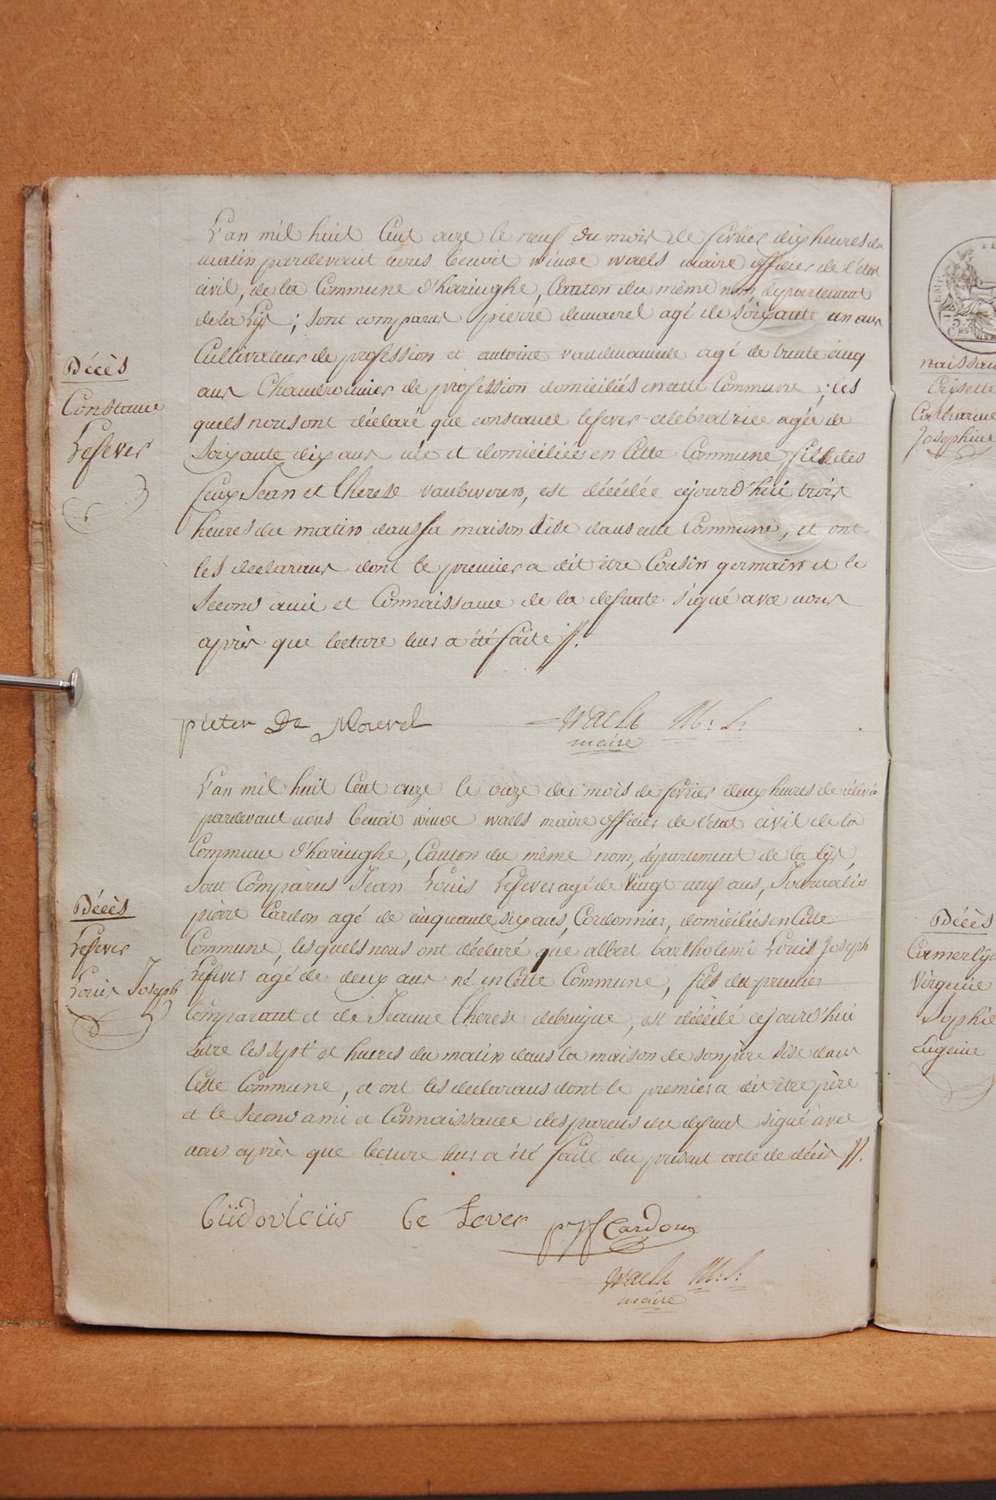 L'an mil huit Cent onze le neuf du mois de fevrier dix heures du
matin pardevant nous benoit winoc waels maire officier de l'état
civil, de la Commune d'haringhe, Canton du même nom, departement
de la Lys ; sont comparus pierre demaerel agé de soixante un ans
Cultivateur de profession et antoine agé de trente cinq
ans de profession domiciliés en cette Commune ; les
quels nous ont déclaré que constance lefever celebratrice agée de
Soixante dix ans née et domiciliée en Cette Commune fille des
feux Jean et Therese est décédée cejourd'hui trois
heures du matin dans sa maison Sise dans cette Commune, et ont
les declarans dont le premier a dit être Cousin germain et le
Second ami et Connaissance de la defunte signé avec nous
après que lecture leur a été faite ff.
Décès
Constance
Lefever
pieter De Maerel
Waels M. L.
maire
L'an mil huit Cent onze le onze du mois de fevrier deux heures de relevée
pardevant nous benoit winoc waels maire officier de l'état civil de la
Commune d'haringhe, Canton du même nom, departement de la lys,
Sont Comparus Jean Louis Lefever agé de Vingt neuf ans, Journalier
pierre Cardon agé de cinquante six ans, Cordonnier, domiciliés en Cette
Commune, lesquels nous ont déclaré que albert bartholemi Louis Joseph
Lefever agé de deux ans né en Cette Commune, fils du premier
Comparant et de Jeanne Therese debruyne, est décédé cejourd'hui
entre les sept et huit heures du matin dans la maison de son père Sise dans
Cette Commune, et ont les declarans dont le premier a dit être père
et le Second ami et Connaissance des parens du defunt signé avec
nous après que lecture leur a été faite du présent acte de décès ff.
Décès
Lefever
Louis Joseph
Ludovicus Le Fever
Cardon
Waels M. L.
maire
naissan
Josephine
Décès
Virginie
Sophie
Eugenie